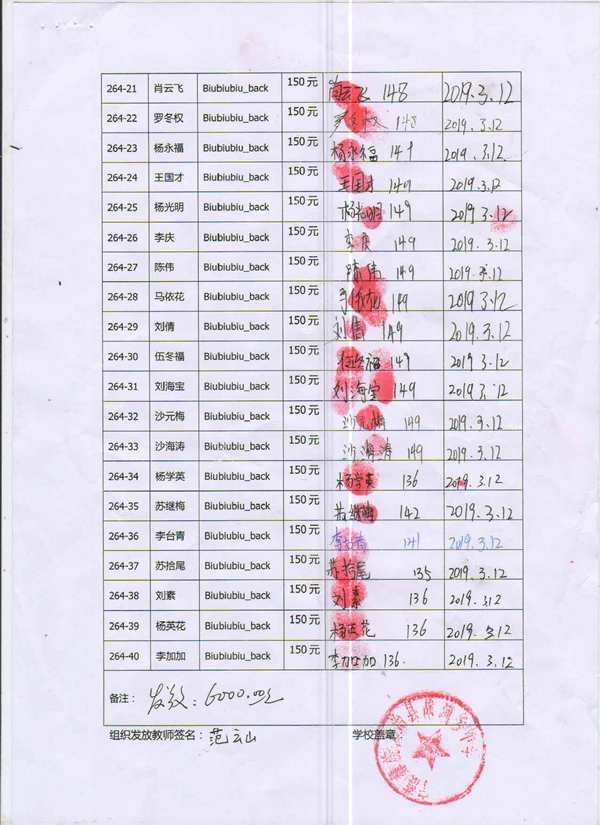 264-21 肖云飞 Biubiubiu_back 150元 肖云飞 148 2019.3.12
264-22 罗冬权 Biubiubiu_back 150元 罗冬权 148 2019.3.12
264-23 杨永福 Biubiubiu_back 150元 杨永福 149 2019.3.12
264-24 王国才 Biubiubiu_back 150元 王国才 149 2019.3.12
264-25 杨光明 Biubiubiu_back 150元 杨光明 149 2019 3.12
264-26 李庆 Biubiubiu_back 150元 李庆 149 2019.3.12
264-27 陈伟 Biubiubiu_back 150元 陈伟 149 2019.3.12
264-28 马依花 Biubiubiu_back 150元 149 2019 3.12
264-29 刘倩 Biubiubiu_back 150元 刘倩 149 2019.3.12
264-30 伍冬福 Biubiubiu_back 150元 伍冬福 149 2019.3.12
264-31 刘海宝 Biubiubiu_back 150元 刘海宝 149 2019 3.12
264-32 沙元梅 Biubiubiu_back 150元 沙元梅 149 2019.3.12
264-33 沙海涛 Biubiubiu_back 150元 沙海涛 149 2019.3.12
264-34 杨学英 Biubiubiu_back 150元 杨学英 136 2019.3.12
264-35 苏继梅 Biubiubiu_back 150元 苏继梅 142 2019.3.12
264-36 李台青 Biubiubiu_back 150元 李台青 141 2019.3.12
264-37 苏拾尾 Biubiubiu_back 150元 苏拾尾 135 2019.3.12
264-38 刘素 Biubiubiu_back 150元 刘素 136 2019.3.12
264-39 杨英花 Biubiubiu_back 150元 杨英花 136 2019.3.12
264-40 李加加 Biubiubiu_back 150元 李加加 136. 2019.3.12
备注： 发放：6000.00元
组织发放教师签名：范云山 学校盖章：